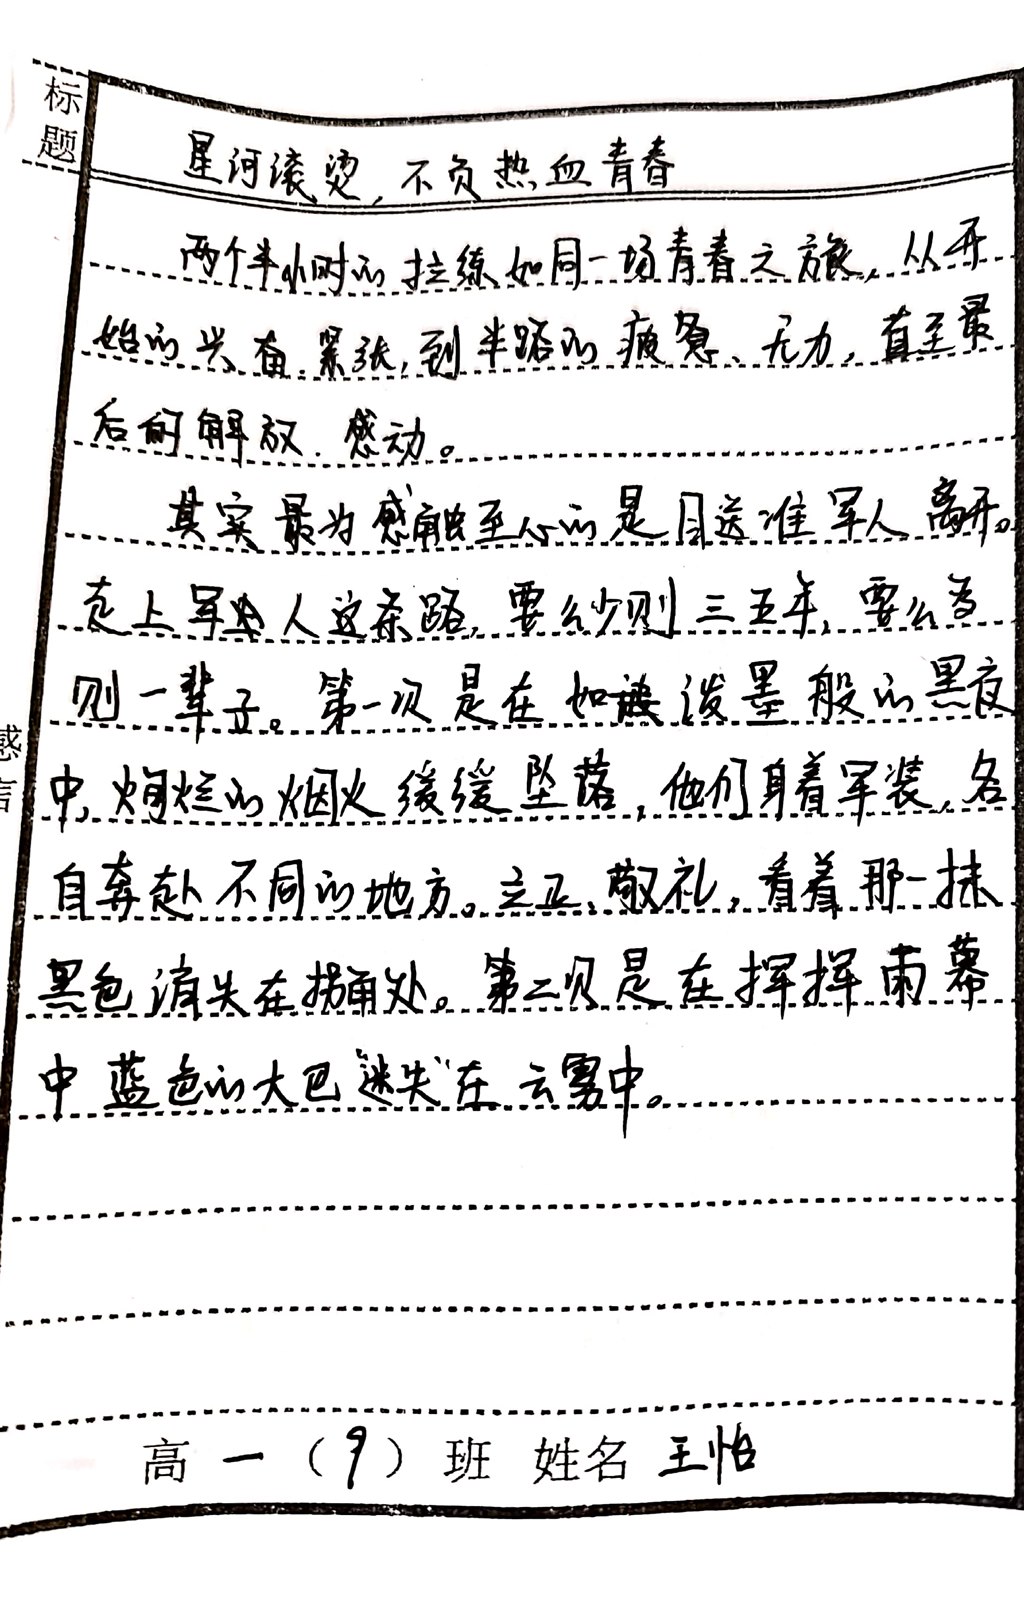 标题
星河滚烫，不负热血青春
两个半小时的拉练如同一场青春之旅，从开
始的兴奋、紧张，到半路的疲惫、无力，直至最
后的解放、感动。
其实最为感触至心的是目送准军人离开。
走上军人这条路，要么少则三五年，要么多
则一辈子。第一次是在如泼墨般的黑夜
中，炯烂的烟火缓缓坠落，他们身着军装，各
自奔赴不同的地方。立正、敬礼，看着那一抹
黑色消失在拐角处。第二次是在挥挥雨幕
中蓝色的大巴“迷失”在云雾中。
感言
高一（9）班 姓名 王怡